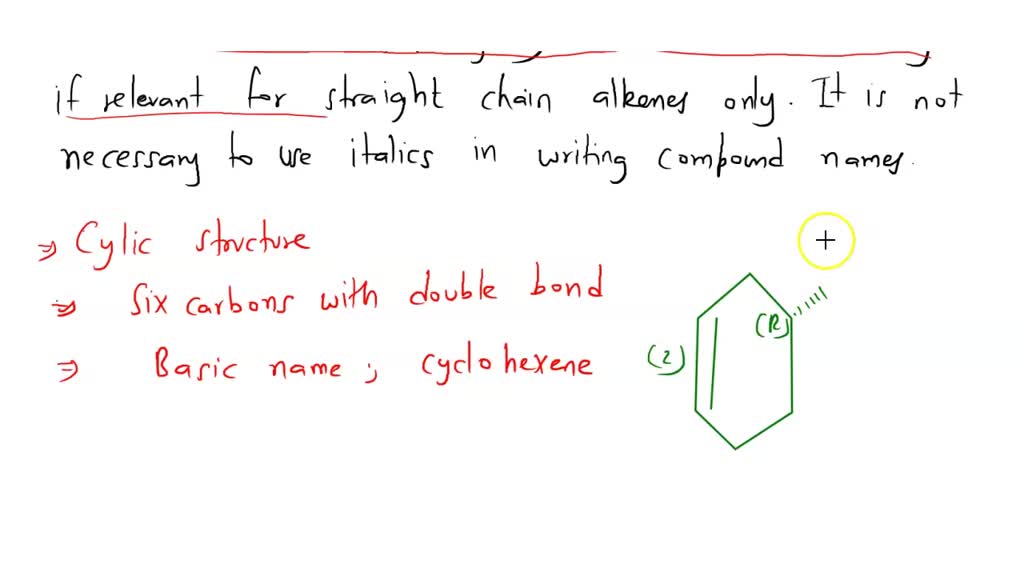 if relevant for straight chain alkenes only. It is not
necessary to use italics in writing compound names.
⇒ Cylic structure
⇒ Six carbons with double bond
⇒ Basic name; cyclohexene
(R)
(Z)